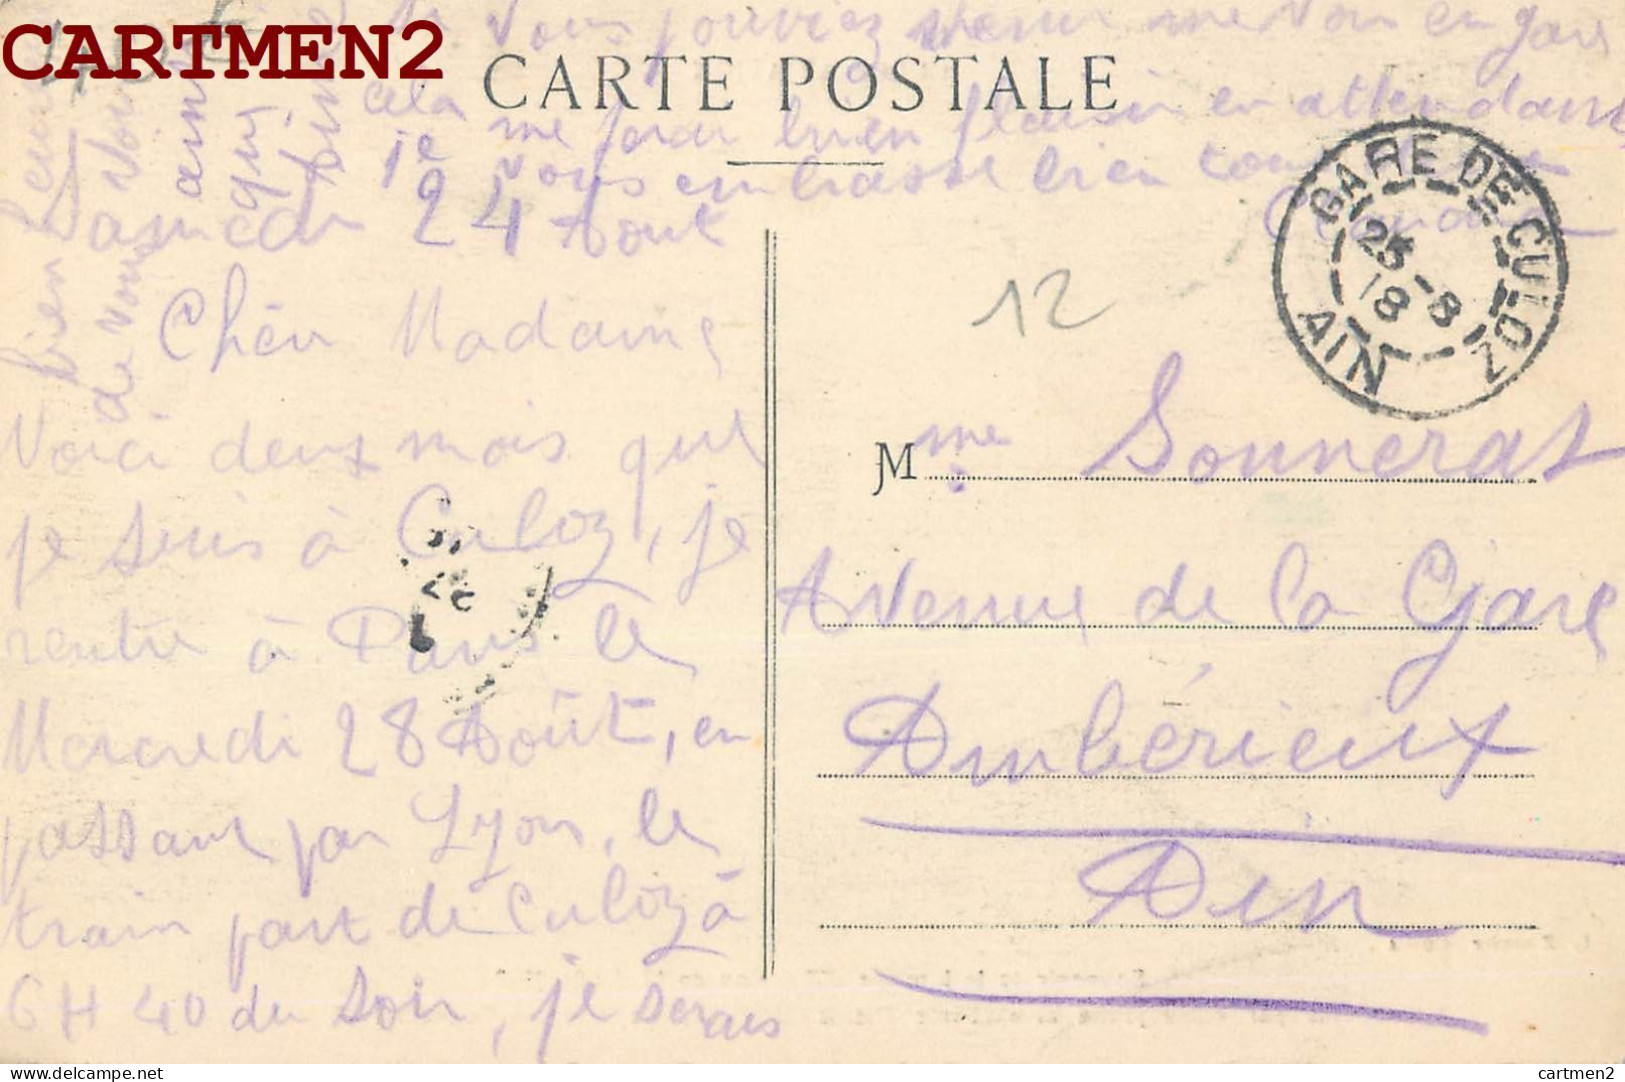 CARTMEN2
CARTE POSTALE
Samedi 24 Aout
Chère Madame
Voici deux mois que
je suis à Culoz, je
rentre à Paris le
Mercredi 28 Août, en
passant par Lyon, le
train part de Culoz à
6 H 40 du soir, je serais
bien heureuse
de vous voir
ainsi
qui
si vous pouviez venir me voir en gare
cela me ferai bien plaisir en attendant
je vous embrasse bien
GARE DE CULOZ
25 -8
18
AIN
12
Mme Sonnerat
Avenue de la Gare
Ambérieux
Ain
cartmen2